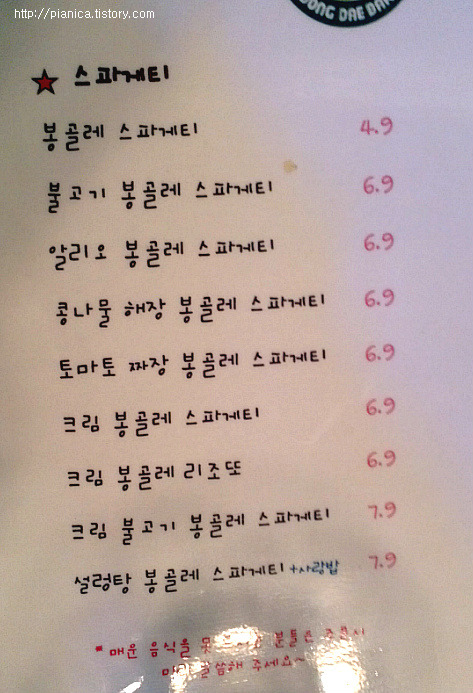 http://pianica.tistory.com
DONG DAE
★ 스파게티
봉골레 스파게티 4.9
불고기 봉골레 스파게티 6.9
알리오 봉골레 스파게티 6.9
콩나물 해장 봉골레 스파게티 6.9
토마토 짜장 봉골레 스파게티 6.9
크림 봉골레 스파게티 6.9
크림 봉골레 리조또 6.9
크림 불고기 봉골레 스파게티 7.9
설렁탕 봉골레 스파게티 +사랑밥 7.9
* 매운 음식을 못 분들은 주문시
말씀해 주세요~